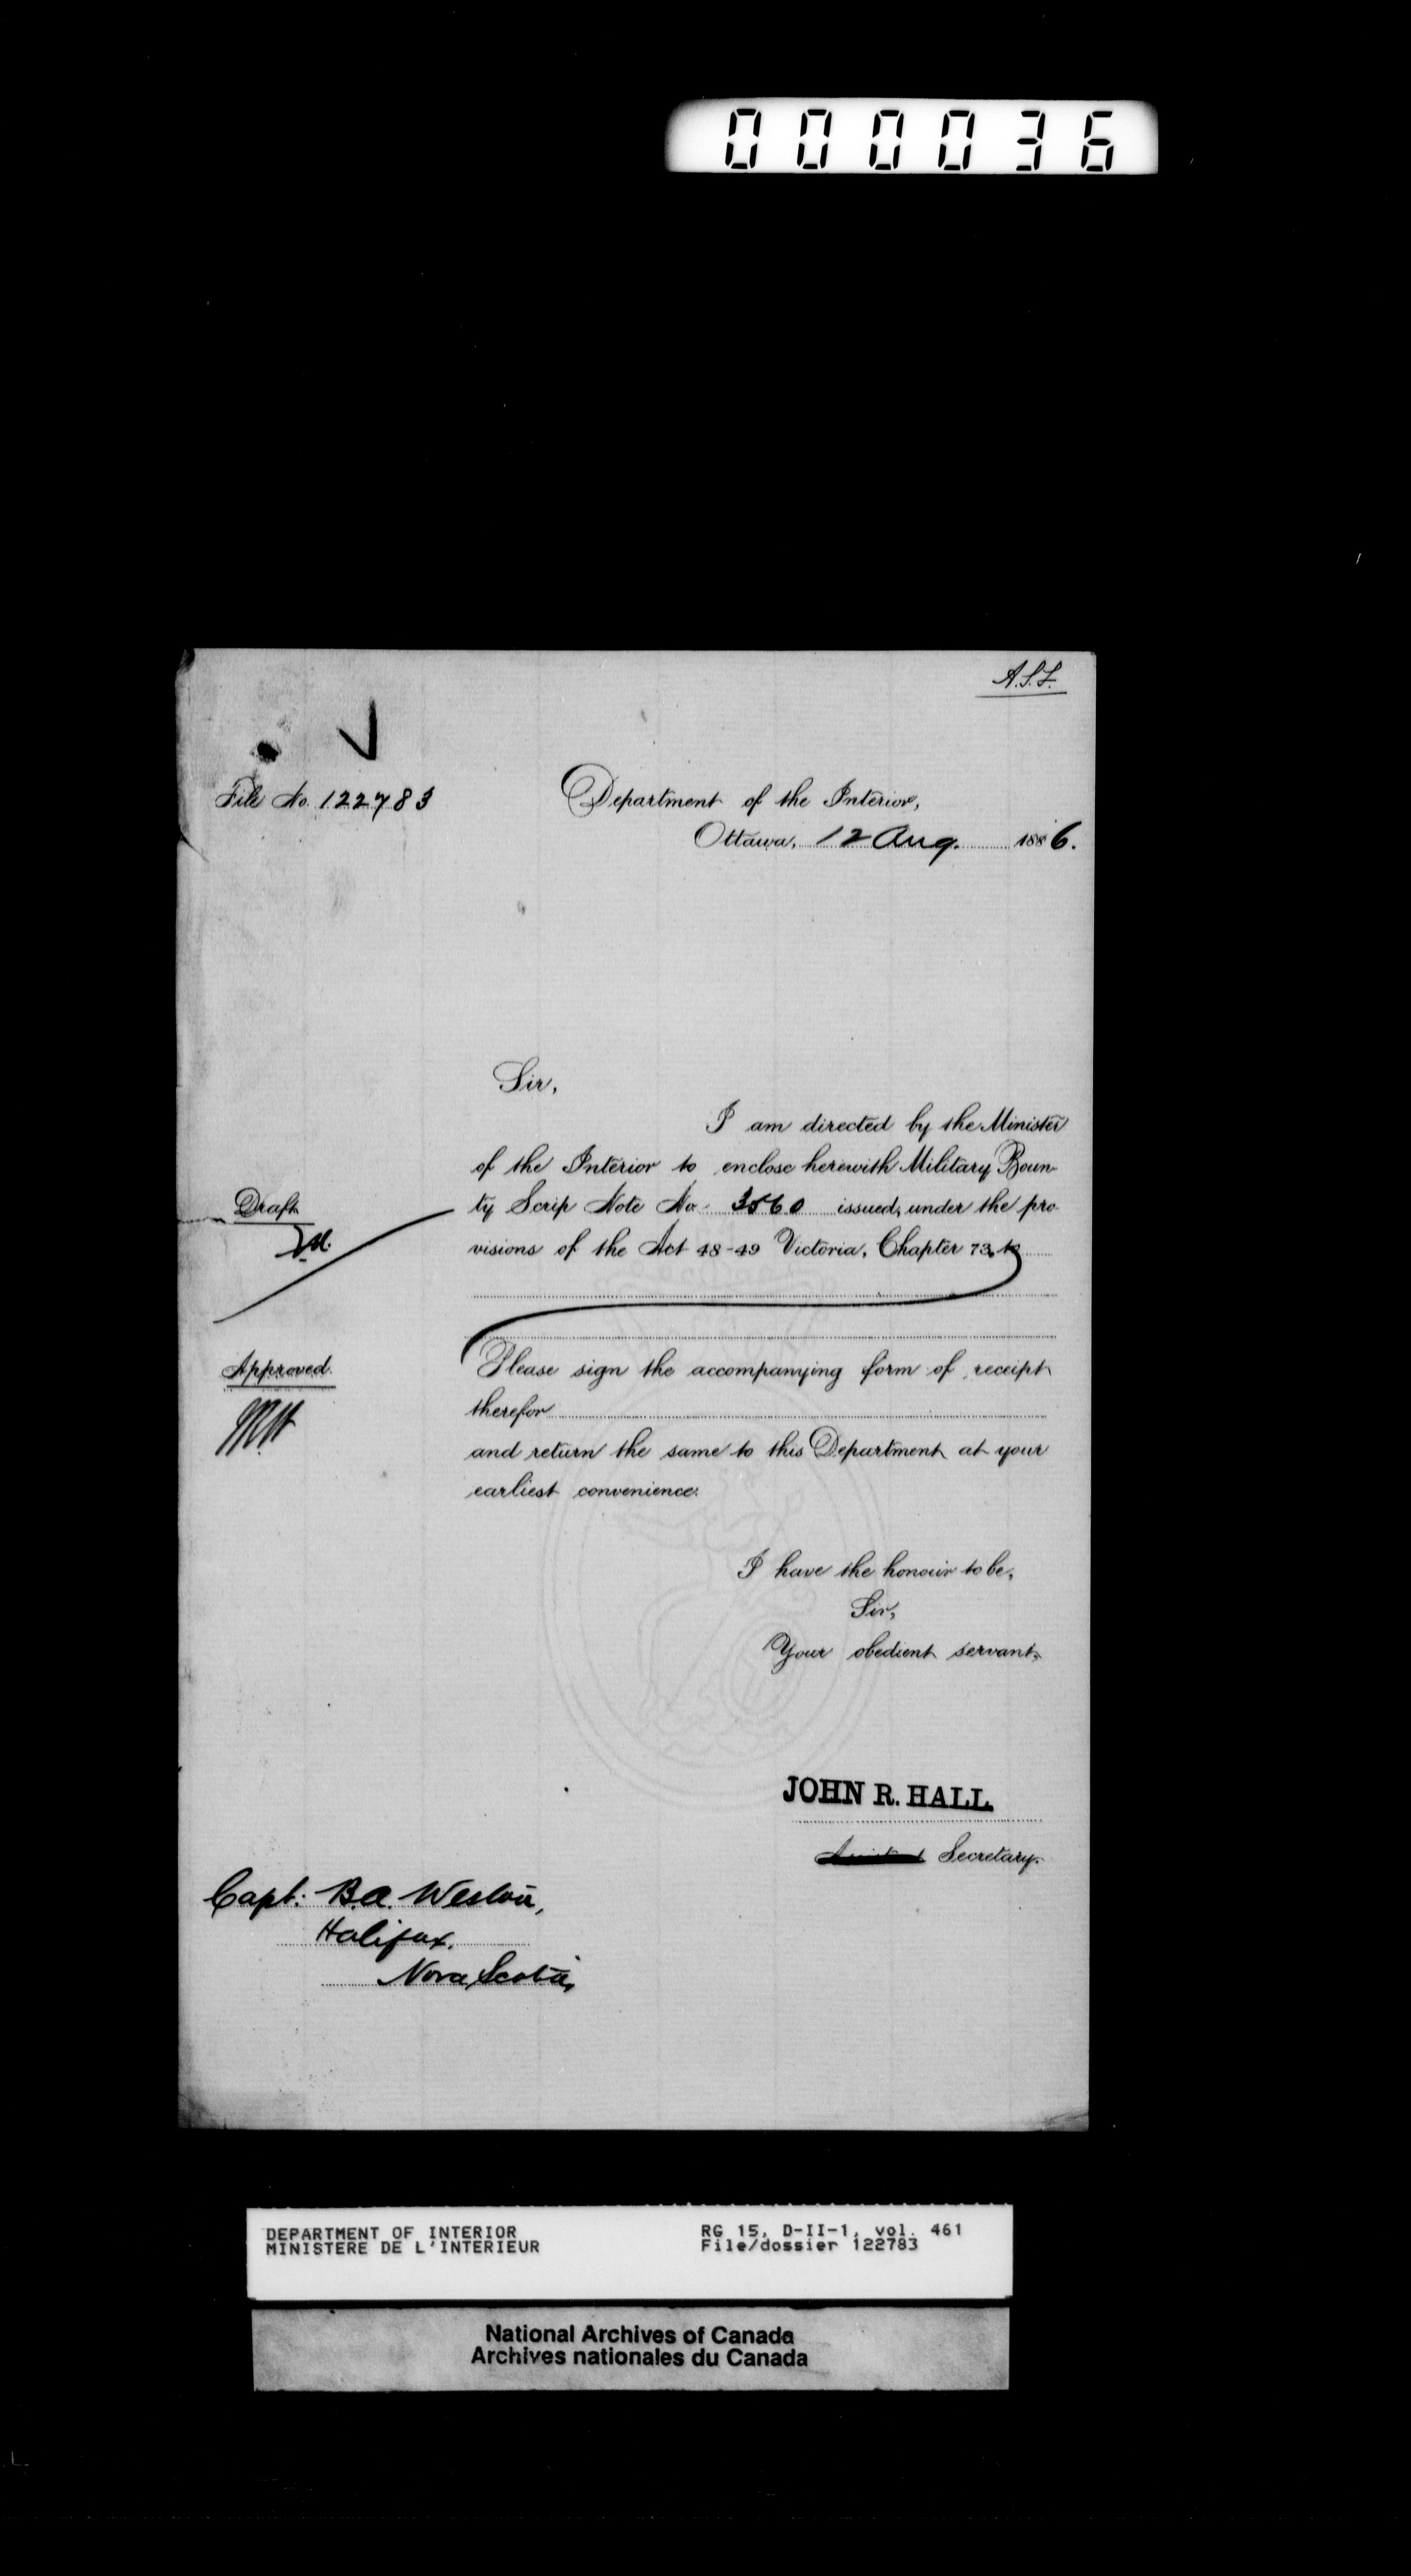 000036
A.S.L.
File No. 122783
Department of the Interior,
Ottawa, 12 Aug. 1886.
Sir,
I am directed by the Minister
of the Interior to enclose herewith Military Boun-
ty Scrip Note No. 3560 issued, under the pro-
visions of the Act 48-49 Victoria, Chapter 73, to
Draft
Please sign the accompanying form of receipt
Approved.
therefor
and return the same to this Department at your
earliest convenience.
I have the honour to be,
Sir,
Your obedient servant,
JOHN R. HALL
Secretary.
Capt: B.A. Weston,
Halifax.
Nova Scotia,
DEPARTMENT OF INTERIOR
MINISTERE DE L'INTERIEUR
RG 15, D-II-1, vol. 461
File/dossier 122783
National Archives of Canada
Archives nationales du Canada